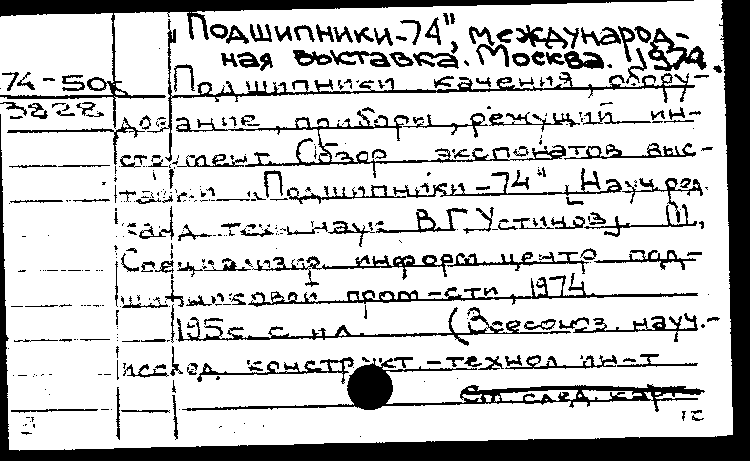 „Подшипники-74", международ-
ная выставка. Москва. 1974.
74-50к Подшипники качения, обору-
3828 дование, приборы, режущий ин-
струмент. Обзор экспонатов выс-
тавки „Подшипники-74" [Науч. ред.
канд. техн. наук В.Г. Устинов]. М.,
Специализир. информ. центр под-
шипниковой пром-сти, 1974.
195 с. с ил. (Всесоюз. науч.-
исслед. конструкт.-технол. ин-т
См. след. карт.